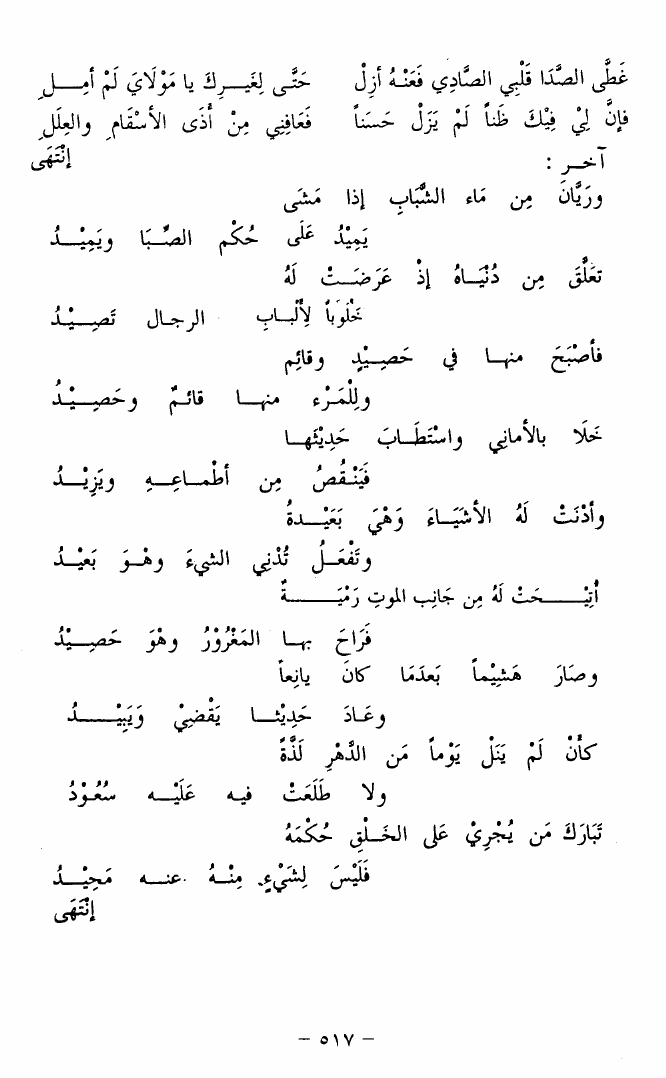 غَطَّى الصَّدَا قَلْبِي الصَّادِي فَعَنْهُ أزِلْ حَتَّى لِغَيرِكَ يا مَوْلَايَ لَمْ أمِلِ
فإنَّ لِيْ فِيْكَ ظَناً لَمْ يَزَلْ حَسَناً فَعَافِنِي مِنْ أَذَى الأسْقَامِ والعِلَلِ
إنْتَهَى
آخر :
ورَيَّانَ مِن مَاءِ الشَّبَابِ إذا مَشَى
يَمِيْدُ عَلَى حُكْمِ الصِّبَا ويَمِيْدُ
تعَلَّقَ مِن دُنْيَاهُ إذْ عَرَضَتْ لَهُ
خَلُوباً لِأَلْبابِ الرجال تَصِيْدُ
فأصْبَحَ منها في حَصِيْدٍ وقائِمِ
ولِلْمَرْءِ منها قائمٌ وحَصِيْدُ
خَلَا بالأمانِي واسْتَطَابَ حَدِيْثَها
فَيَنْقُصُ مِن أطْماعِهِ ويَزِيْدُ
وأدْنَتْ لَهُ الأشْيَاءَ وَهْيَ بَعَيْدةُ
وتَفْعَلُ تُدْنِي الشيءَ وهْوَ بَعَيْدُ
أُتِيْحَتْ لَهُ مِن جَانِبِ الموتِ رَمْيَةٌ
فَرَاحَ بها المَغْرُوْرُ وهْوَ حَصِيْدُ
وصَارَ هَشِيْماً بَعدَمَا كانَ يانِعاً
وعَادَ حَدِيْثا يَقْضِيْ وَيَبِيْدُ
كأنْ لَمْ يَنَل يَوْماً مَن الدَّهْرِ لَذَّةً
ولا طَلَعَتْ فيه عَلَيْه سُعُوْدُ
تَبَارَكَ مَن يُجْرِيْ عَلى الخَلْقِ حُكْمَهُ
فَلَيْسَ لِشَيْءٍ مِنْهُ عنه مَحِيْدُ
إنْتَهَى
– ٥١٧ –